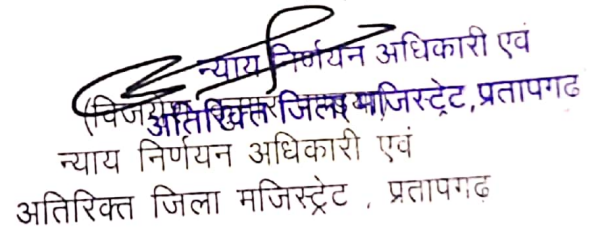 न्याय निर्णयन अधिकारी एवं
अतिरिक्त जिला मजिस्ट्रेट, प्रतापगढ
न्याय निर्णयन अधिकारी एवं
अतिरिक्त जिला मजिस्ट्रेट , प्रतापगढ